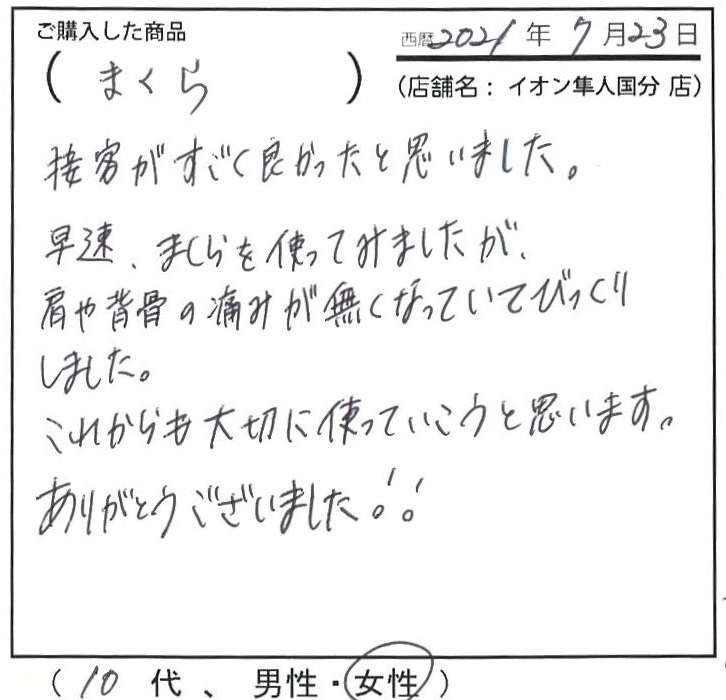 ご購入した商品
西暦2021年7月23日
(まくら)
(店舗名：イオン隼人国分 店)
接客がすごく良かったと思いました。
早速、まくらを使ってみましたが、
肩や背骨の痛みが無くなっていてびっくり
しました。
これからも大切に使っていこうと思います。
ありがとうございました!!
(10代、男性・女性)